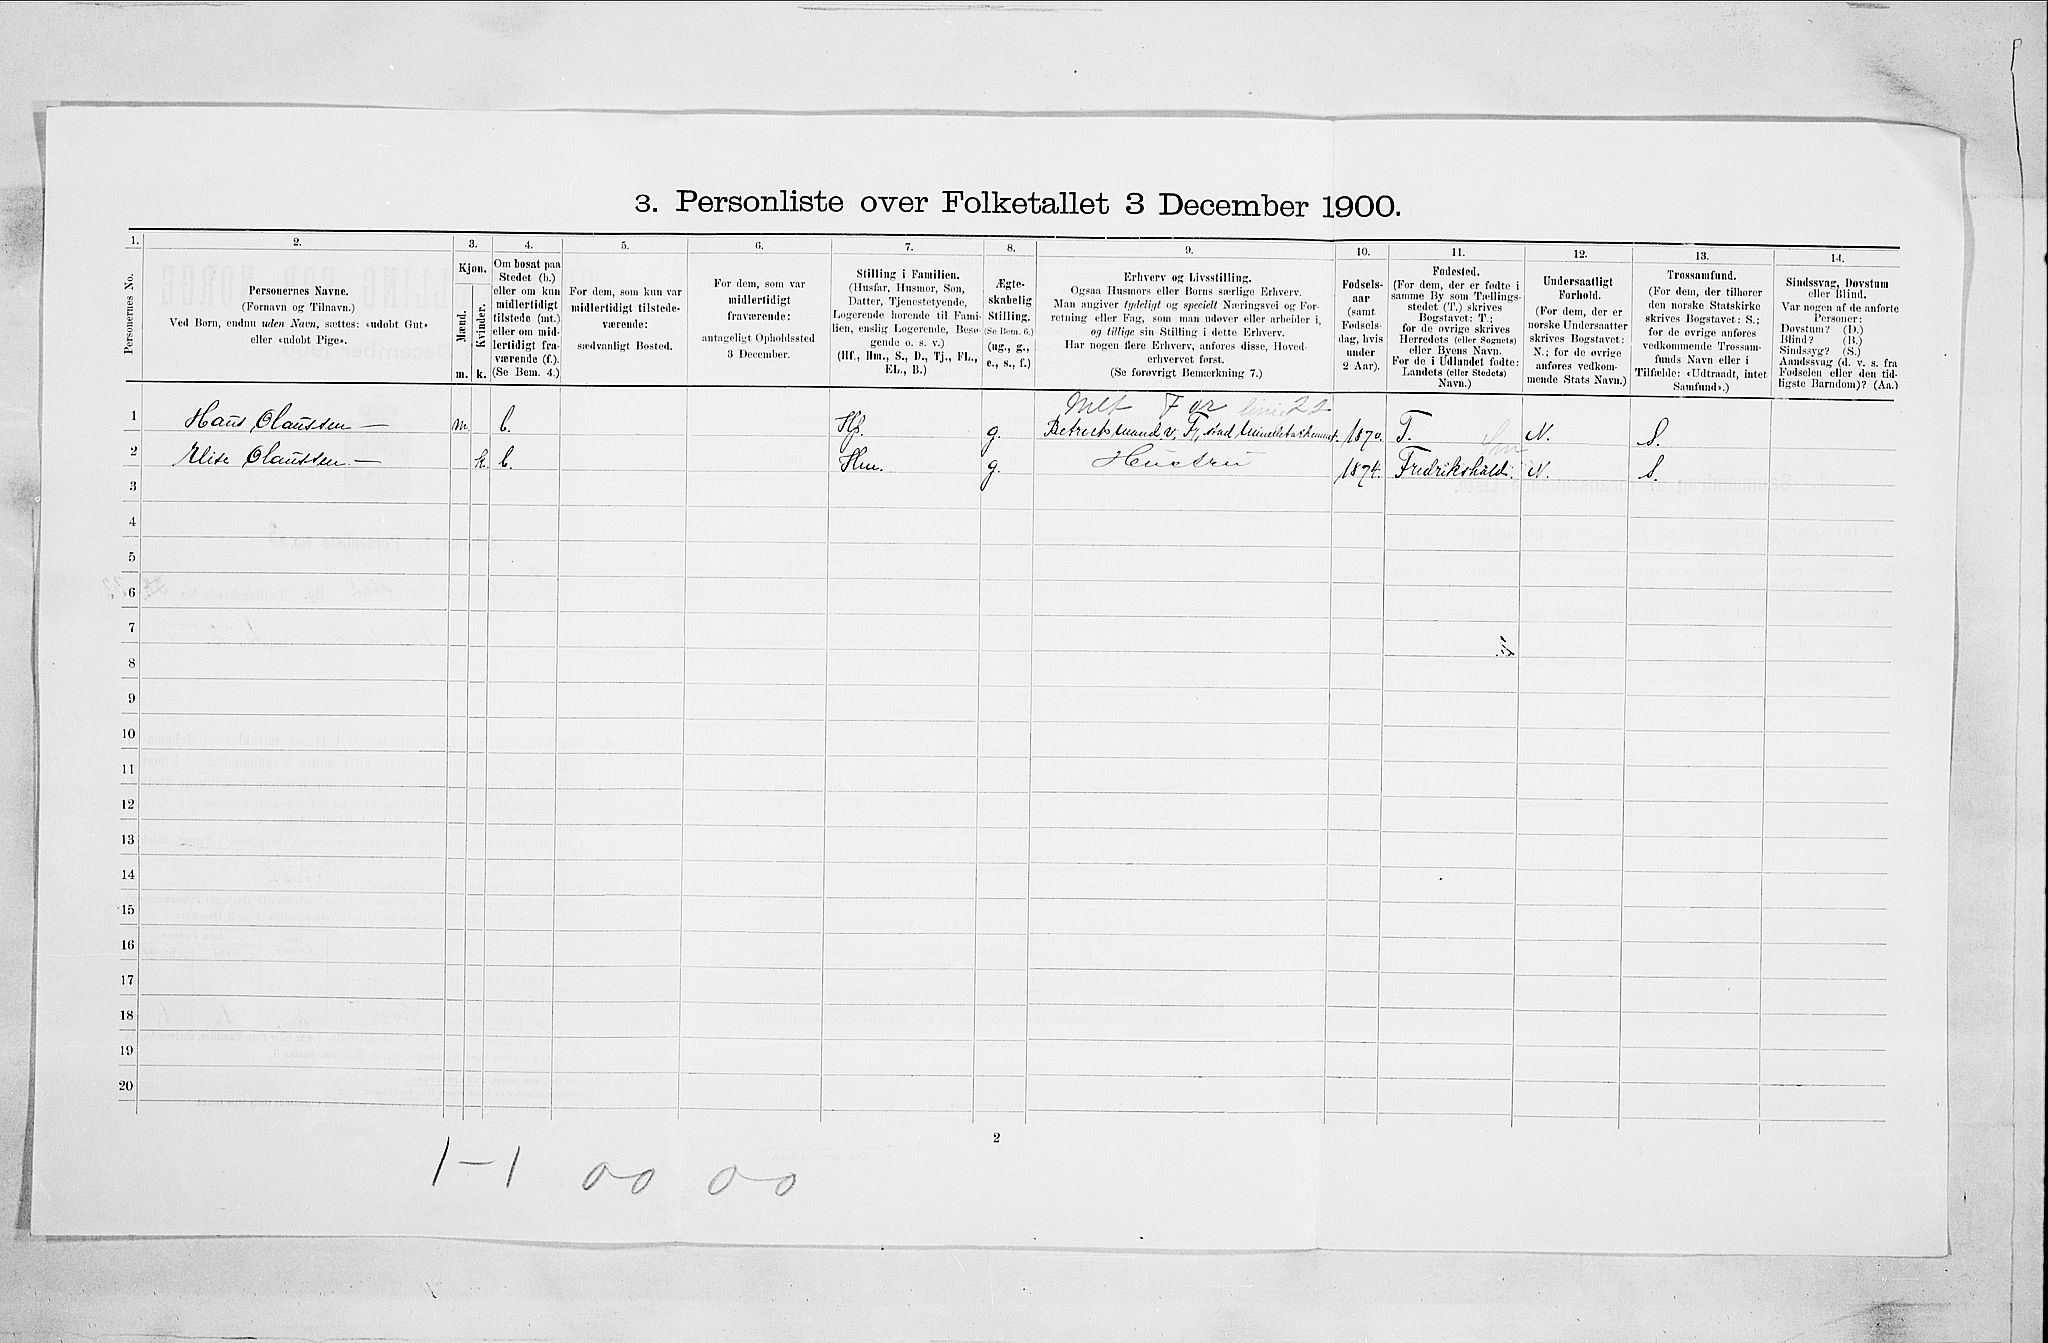 3. Personliste over Folketallet 3 December 1900.
1.
2.
3.
4.
5.
6.
7.
8.
9.
10.
11.
12.
13.
14.
Personernes No.
Personernes Navne.
(Fornavn og Tilnavn.)
Ved Børn, endnu uden Navn, sættes: «udøbt Gut»
eller «udøbt Pige».
Kjøn.
Mænd.
Kvinder.
m.
k.
Om bosat paa
Stedet (b.)
eller om kun
midlertidigt
tilstede (mt.)
eller om mid-
lertidigt fra-
værende (f.).
(Se Bem. 4.)
For dem, som kun var
midlertidigt tilstede-
værende:
sædvanligt Bosted.
For dem, som var
midlertidigt
fraværende:
antageligt Opholdssted
3 December.
Stilling i Familien.
(Husfar, Husmor, Søn,
Datter, Tjenestetyende,
Logerende hørende til Fami-
lien, enslig Logerende, Besø-
gende o. s. v.)
(Hf., Hm., S., D., Tj., FL.,
EL., B.)
Ægte-
skabelig
Stilling.
(Se Bem. 6.)
(ug., g.,
e., s., f.)
Erhverv og Livsstilling.
Ogsaa Husmors eller Børns særlige Erhverv.
Man angiver tydeligt og specielt Næringsvei og For-
retning eller Fag, som man udøver eller arbeider i,
og tillige sin Stilling i dette Erhverv.
Har nogen flere Erhverv, anføres disse, Hoved-
erhvervet først.
(Se forøvrigt Bemærkning 7.)
Fødsels-
aar
(samt
Fødsels-
dag, hvis
under
2 Aar).
Fødested.
(For dem, der er fødte i
samme By som Tællings-
stedet (T.) skrives
Bogstavet: T.;
for de øvrige skrives
Herredets (eller Sognets)
eller Byens Navn.
For de i Udlandet fødte:
Landets (eller Stedets)
Navn.)
Undersaatligt
Forhold.
(For dem, der er
norske Undersaatter
skrives Bogstavet:
N.; for de øvrige
anføres vedkom-
mende Stats Navn.)
Trossamfund.
(For dem, der tilhører
den norske Statskirke
skrives Bogstavet: S.;
for de øvrige anføres
vedkommende Trossam-
funds Navn eller i
Tilfælde: «Udtraadt, intet
Samfund».)
Sindssvag, Døvstum
eller Blind.
Var nogen af de anførte
Personer:
Døvstum? (D.)
Blind? (B.)
Sindssyg? (S.)
Aandssvag (d. v. s. fra
Fødselen eller den tid-
ligste Barndom)? (Aa.)
1 Hans Claussen — m b. Hf. g. 1870. T. N. S.
2 Elise Claussen. — k. b. Hm. g. Hustru 1874. Fredrikshald. N. S.
3
4
5
6
7
8
9
10
11
12
13
14
15
16
17
18
19
20
2
1-1 00 00